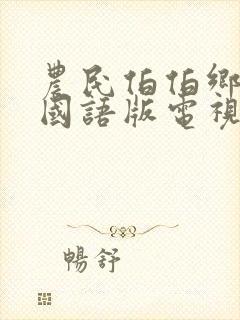 農民伯伯鄉
國語版電視
暢舒